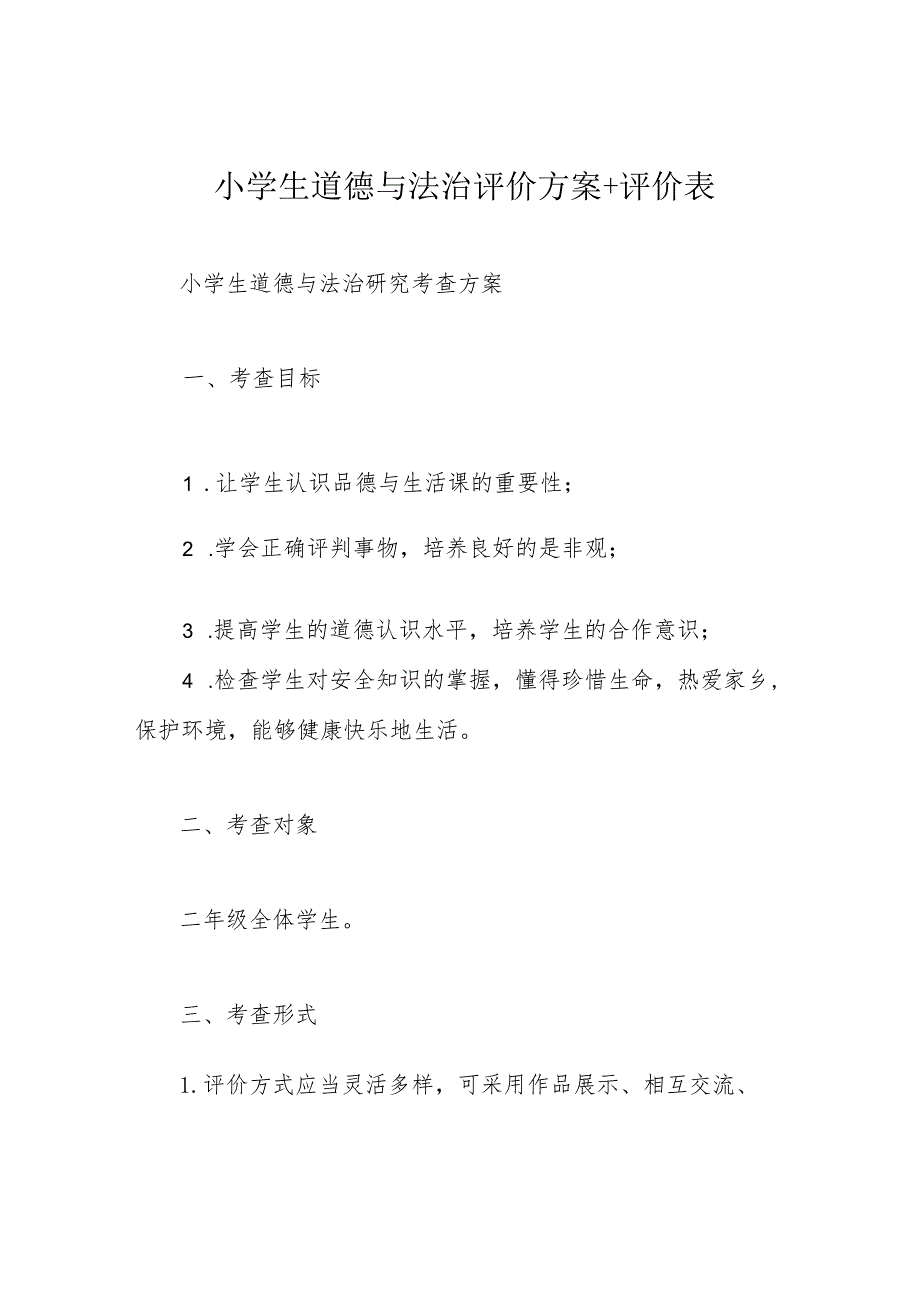 小学生道德与法治评价方案+评价表
小学生道德与法治研究考查方案
一、考查目标
1 .让学生认识品德与生活课的重要性；
2 .学会正确评判事物，培养良好的是非观；
3 .提高学生的道德认识水平，培养学生的合作意识；
4 .检查学生对安全知识的掌握，懂得珍惜生命，热爱家乡,
保护环境，能够健康快乐地生活。
二、考查对象
二年级全体学生。
三、考查形式
1.评价方式应当灵活多样，可采用作品展示、相互交流、